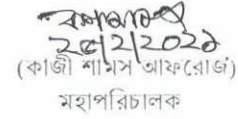 ২৫/২/২০২১
(কাজী শামস আফরোজ)
মহাপরিচালক